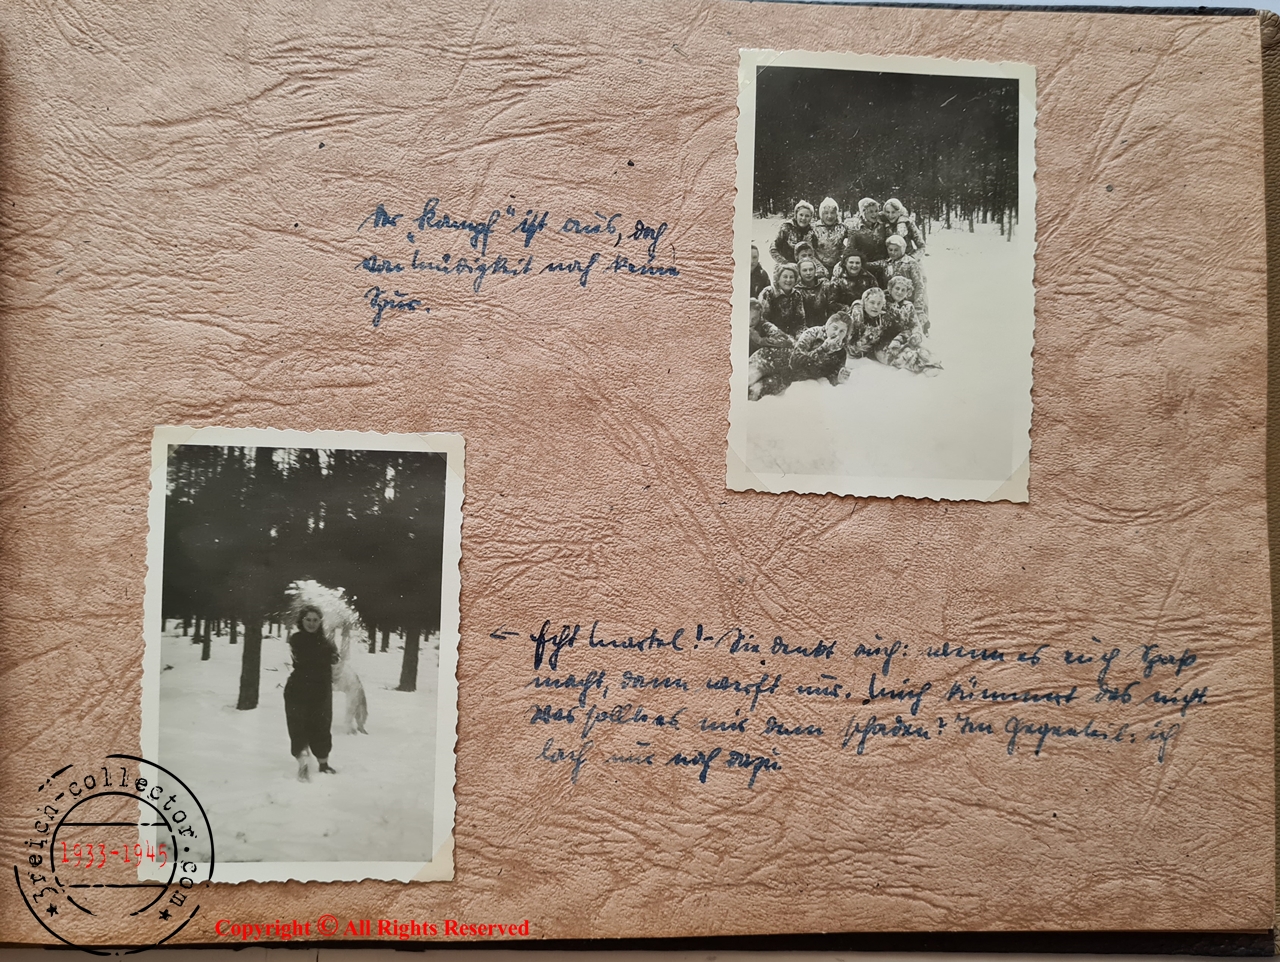 Der „Kampf“ ist aus, doch
von Müdigkeit noch keine
Spur.
← Echt Martel! - Sie denkt auch: wenn es euch Spaß
macht, dann werft nur. Mich kümmert das nicht.
Was sollte es mir denn schaden? Im Gegenteil: ich
lach nur noch dazu
3reich-collector.com
1933-1945
Copyright © All Rights Reserved